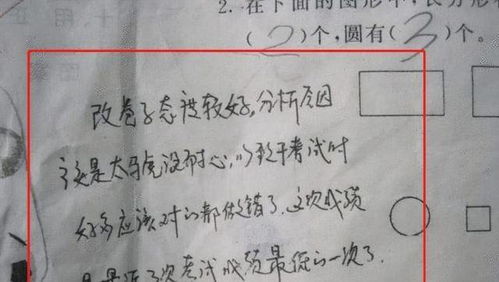 2. 在下面的图形中,长方形
(2)个,圆有(3)个。
改卷子态度较好。分析原因
主要是太马虎没耐心,以致于考试时
好多应该对的都做错了。这次成绩
是最近几次考试成绩最低的一次了.